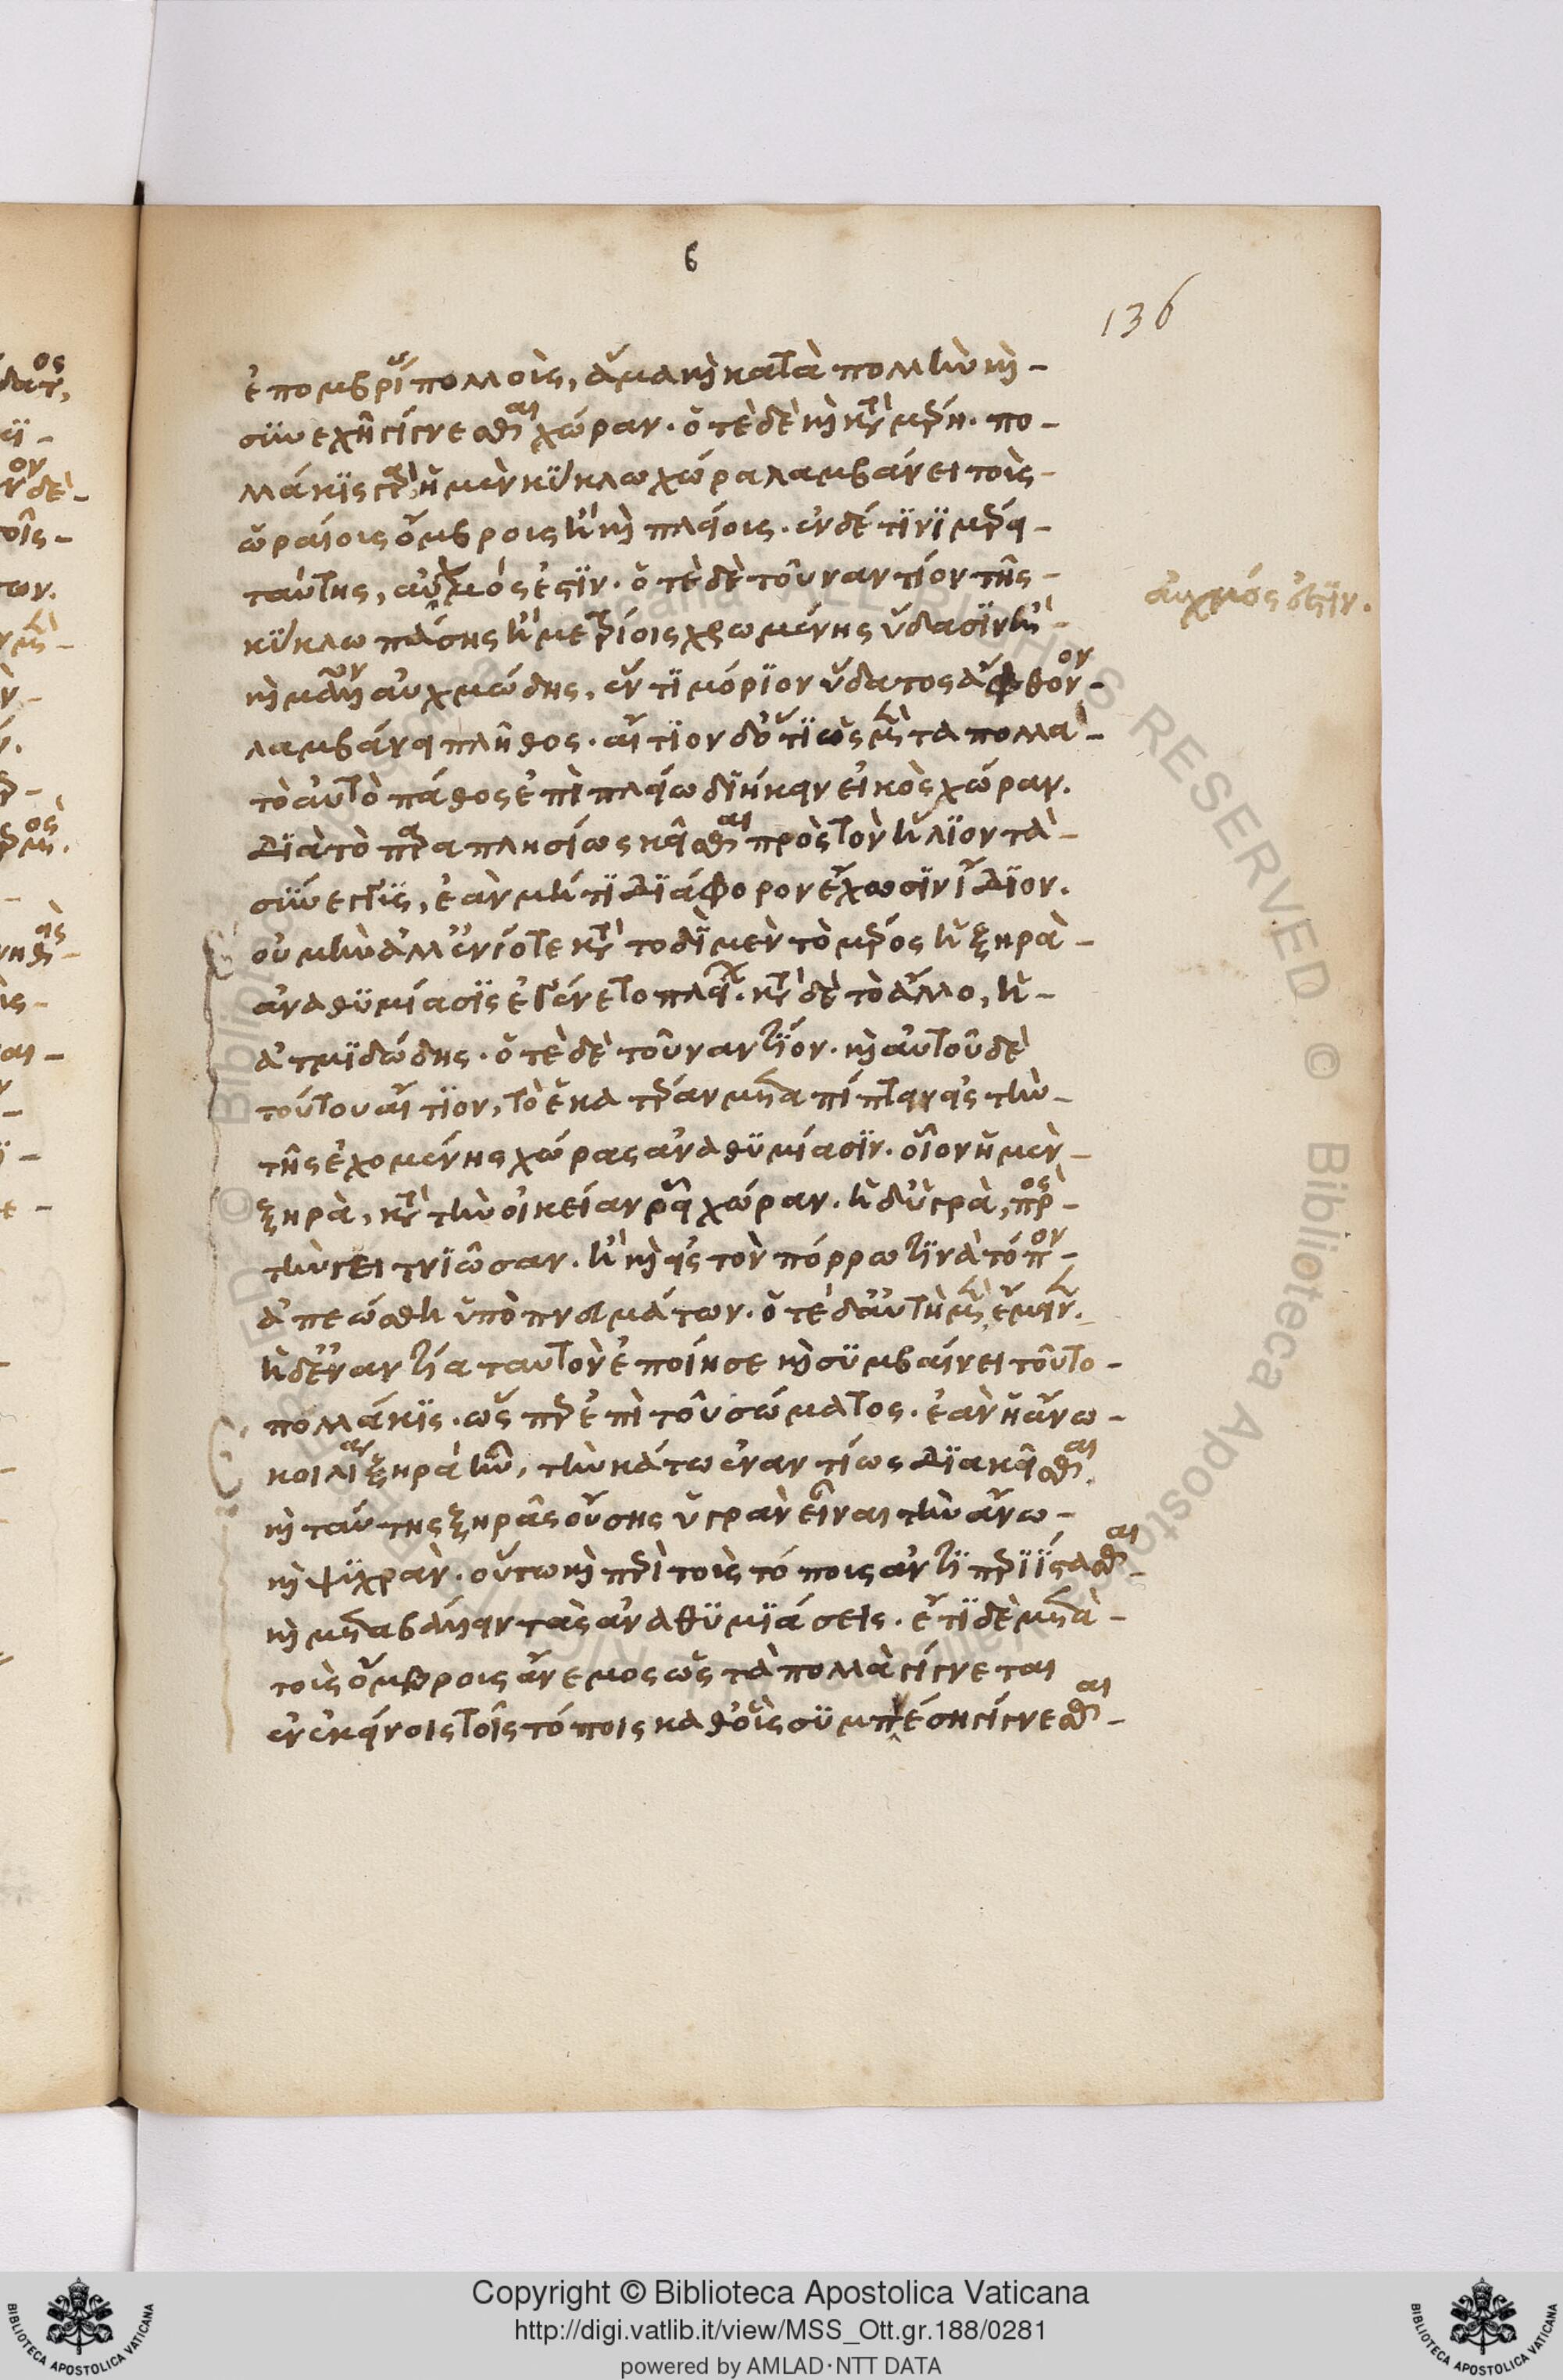 6
136
ἐπομβρίας πολλοῖς, ἅμα καὶ κατὰ πολλὴν καὶ
συνεχῆ γίγνεσθαι χώραν. ὁτὲ δὲ καὶ κατὰ μέρη. πο
λλάκις γὰρ ἡ μὲν κύκλω χώρα λαμβάνει τοὶς
ὡραίοις ὄμβροις ἢ καὶ πλείοις. ἐν δέ τινι μέρει
ταύτης, αὐχμός ἐστιν. ὁτὲ δὲ τοὐναντίον τῆς
αὐχμός ἐστιν.
κύκλω πάσης ἢ μετρίοις χρωμένης ὕδασιν ἢ
καὶ μᾶλλον αὐχμώδης, ἕν τι μόριον ὕδατος ἄφθονον
λαμβάνει πλῆθος. αἴτιον δ' ὅτι ὡς μὲν τὰ πολλὰ
τὸ αὐτὸ πάθος ἐπὶ πλείω διήκειν εἰκὸς χώραν.
διὰ τὸ παραπλησίως κεῖσθαι πρὸς τὸν ἥλιον τὰ
σύνεγγυς, ἐὰν μή τι διάφορον ἔχωσιν ἴδιον.
οὐ μὴν ἀλλ' ἐνίοτε κατὰ τοδὶ μὲν τὸ μέρος ἡ ξηρὰ
ἀναθυμίασις ἐγένετο πλείων. κατὰ δὲ τὸ ἄλλο, ἡ
ἀτμιδώδης. ὁτὲ δὲ τοὐναντίον. καὶ αὐτοῦ δὲ
τούτου αἴτιον, τὸ ἑκατέραν μεταπίπτειν εἰς τὴν
τῆς ἐχομένης χώρας ἀναθυμίασιν. οἷον ἡ μὲν
ξηρὰ, κατὰ τὴν οἰκείαν ῥεῖ χώραν. ἡ δ' ὑγρὰ, πρὸς
τὴν γειτνιῶσαν. ἢ καὶ εἰς τὸν πόρρω τινὰ τόπον
ἀπεώσθη ὑπὸ πνευμάτων. ὁτὲ δ' αὐτὴ μὲν ἔμεινεν.
ἡ δ' ἐναντία ταυτὸν ἐποίησε καὶ συμβαίνει τοῦτο
πολλάκις. ὥσπερ ἐπὶ τοῦ σώματος. ἐὰν ἡ ἄνω
κοιλία ξηρὰ ἦ, τὴν κάτω ἐναντίως διακεῖσθαι.
καὶ ταύτης ξηρᾶς οὔσης ὑγρὰν εἶναι τὴν ἄνω
καὶ ψυχράν. οὕτω καὶ περὶ τοὶς τόποις ἀντιπεριίστασθαι
καὶ μεταβάλλειν τὰς ἀναθυμιάσεις. ἔτι δὲ μετὰ
τοὶς ὄμβροις ἄνεμος ὡς τὰ πολλὰ γίγνεται
ἐν ἐκείνοις τοῖς τόποις καθ' οἷς συμπέση γίγνεσθαι
Copyright © Biblioteca Apostolica Vaticana
http://digi.vatlib.it/view/MSS_Ott.gr.188/0281
powered by AMLAD·NTT DATA